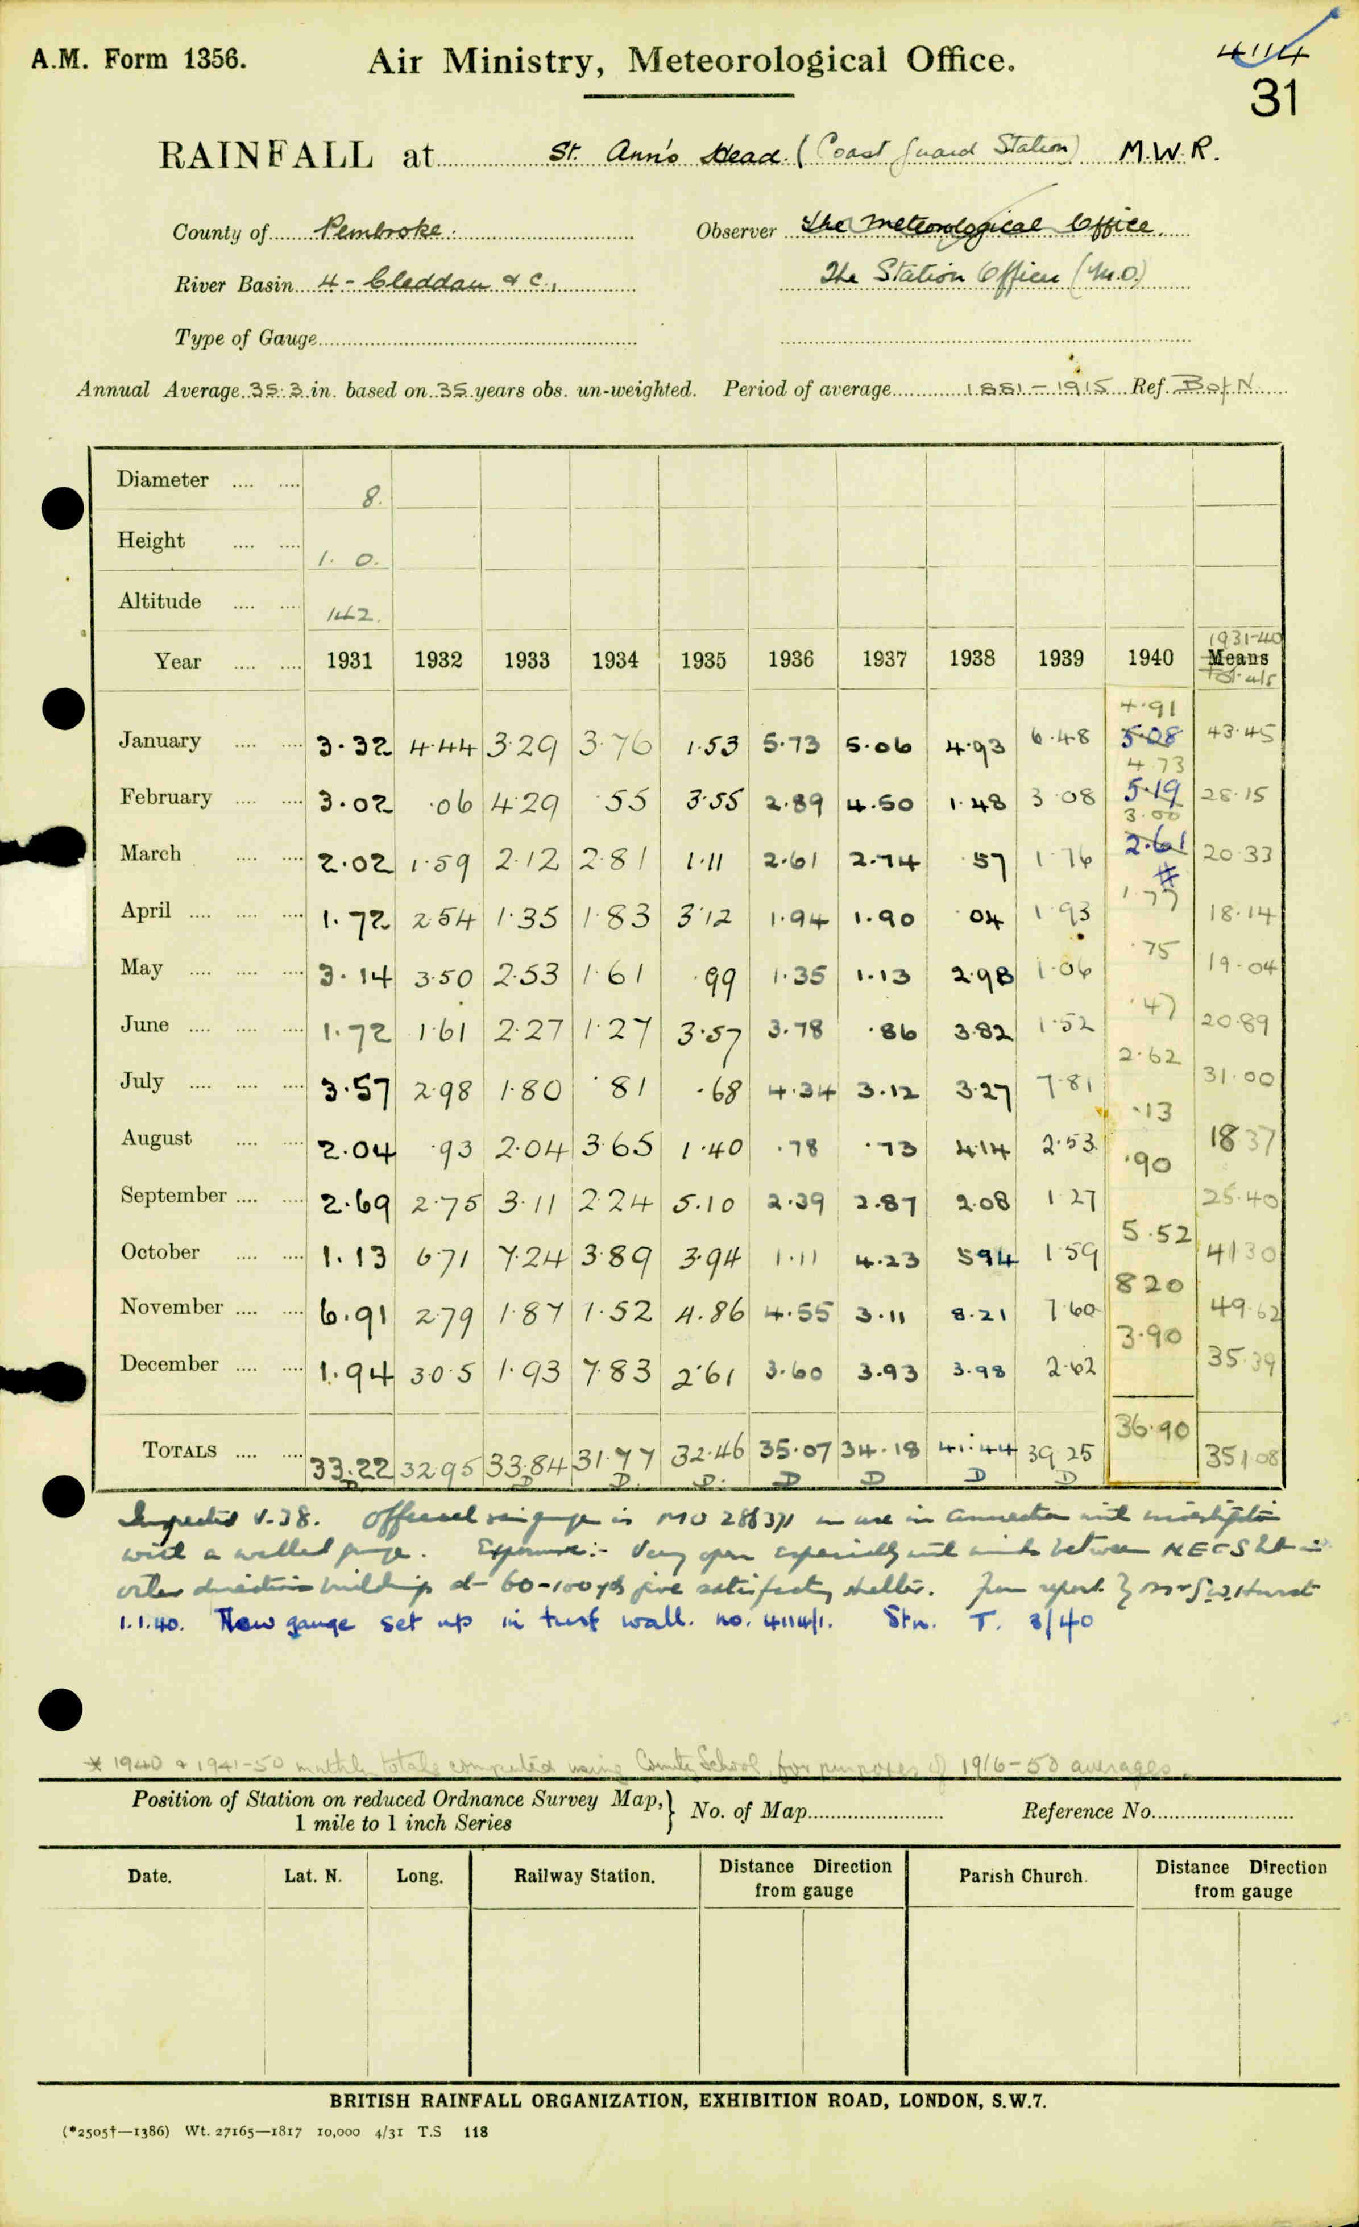 A.M. Form 1356.
Air Ministry, Meteorological Office.
4114
31
RAINFALL at St. Ann's Head (Coast Guard Station) M.W.R.
County of Pembroke. Observer The Meteorological Office.
River Basin 4 - Cleddau & C., The Station Officer (M.O.)
Type of Gauge
Annual Average 35.3 in. based on 35 years obs. un-weighted. Period of average 1881-1915 Ref. B of N.
Diameter 8.
Height 1. 0.
Altitude 142.
Year 1931 1932 1933 1934 1935 1936 1937 1938 1939 1940 1931-40 Means Totals
January 3.32 4.44 3.29 3.76 1.53 5.73 5.06 4.93 6.48 4.91 5.08 43.45
February 3.02 .06 4.29 .55 3.55 2.89 4.50 1.48 3.08 4.73 5.19 28.15
March 2.02 1.59 2.12 2.81 1.11 2.61 2.74 .57 1.76 3.00 2.61 20.33
April 1.72 2.54 1.35 1.83 3.12 1.94 1.90 .04 1.93 1.77 18.14
May 3.14 3.50 2.53 1.61 .99 1.35 1.13 2.98 1.06 .75 19.04
June 1.72 1.61 2.27 1.27 3.57 3.78 .86 3.82 1.52 .47 20.89
July 3.57 2.98 1.80 .81 .68 4.34 3.12 3.27 7.81 2.62 31.00
August 2.04 .93 2.04 3.65 1.40 .78 .73 4.14 2.53 .13 18.37
September 2.69 2.75 3.11 2.24 5.10 2.39 2.87 2.08 1.27 .90 25.40
October 1.13 6.71 7.24 3.89 3.94 1.11 4.23 5.94 1.59 5.52 41.30
November 6.91 2.79 1.87 1.52 4.86 4.55 3.11 8.21 7.60 8.20 49.62
December 1.94 3.05 1.93 7.83 2.61 3.60 3.93 3.98 2.62 3.90 35.39
TOTALS 33.22 32.95 33.84 31.77 32.46 35.07 34.18 41.44 39.25 36.90 351.08
D D D. D. D D D D
Inspected V.38. Official rain gauge is MO in use in connection with investigation
with a walled gauge. Exposure:- Very open especially with winds between
other directions buildings at 60-100 yds give satisfactory shelter. From report
1.1.40. New gauge set up in turf wall. no. 4114/1. Stn. T. 3/40
* 1940 & 1941-50 monthly totals computed using County School, for purposes of 1916-50 averages.
Position of Station on reduced Ordnance Survey Map, No. of Map Reference No.
1 mile to 1 inch Series
Date. Lat. N. Long. Railway Station. Distance Direction from gauge Parish Church. Distance Direction from gauge
BRITISH RAINFALL ORGANIZATION, EXHIBITION ROAD, LONDON, S.W.7.
(*2505†—1386) Wt. 27165—1817 10,000 4/31 T.S 118